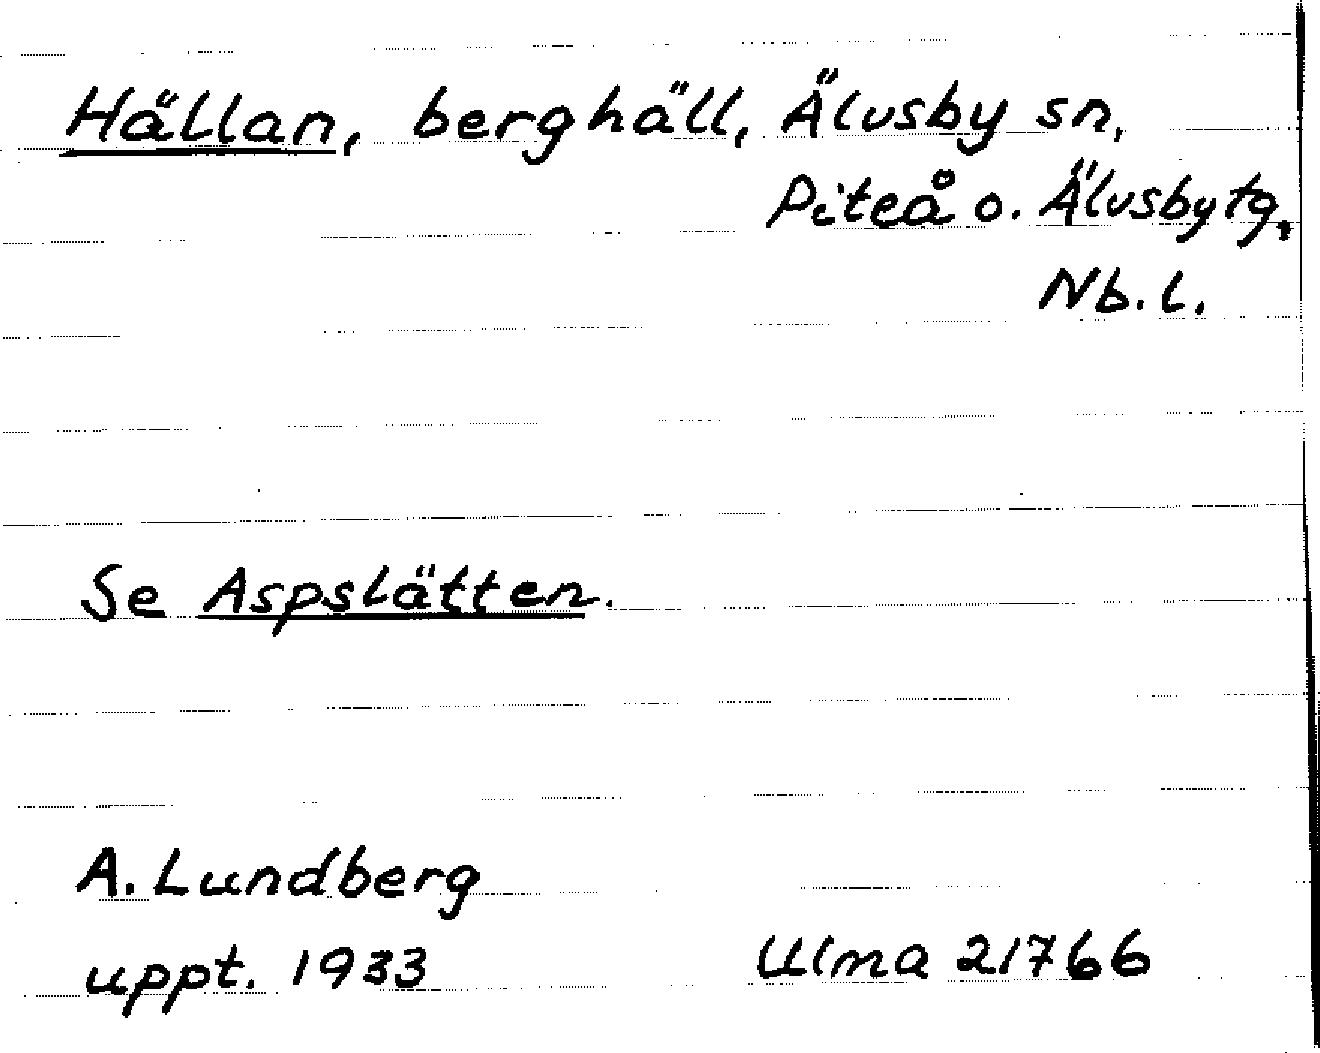 Hällan, berghäll, Älvsby sn,
Piteå o. Älvsby tg,
Nb. l.
Se Aspslätten.
A. Lundberg
uppt. 1933 Ulma 21766